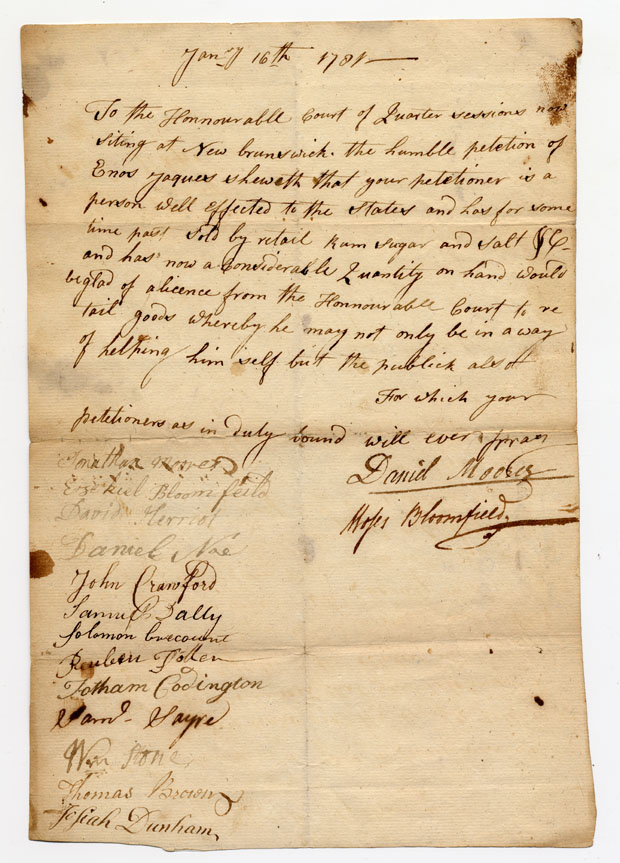 Jany 16th 1781
To the Honnourable Court of Quarter sessions now
siting at New brunswick. the humble petetion of
Enos Jaques sheweth that your petetioner is a
person well effected to the States and has for some
time past sold by retail Rum sugar and salt
and has now a Considerable Quantity on hand would
beglad of alicence from the Honnourable Court to re
tail goods whereby he may not only be in a way
of helping him self but the publick also
For which your
petetioners as in duty bound will ever pray
Daniel Moores
Moses Bloomfield
Jonathan Moores
Ezekiel Bloomfeild
David Herriot
Daniel Noe
John Crawford
Samuel Dally
Solomon
Reuben
Jotham Codington
Saml Sayre
Wm Stone
Thomas Brown
Josiah Dunham